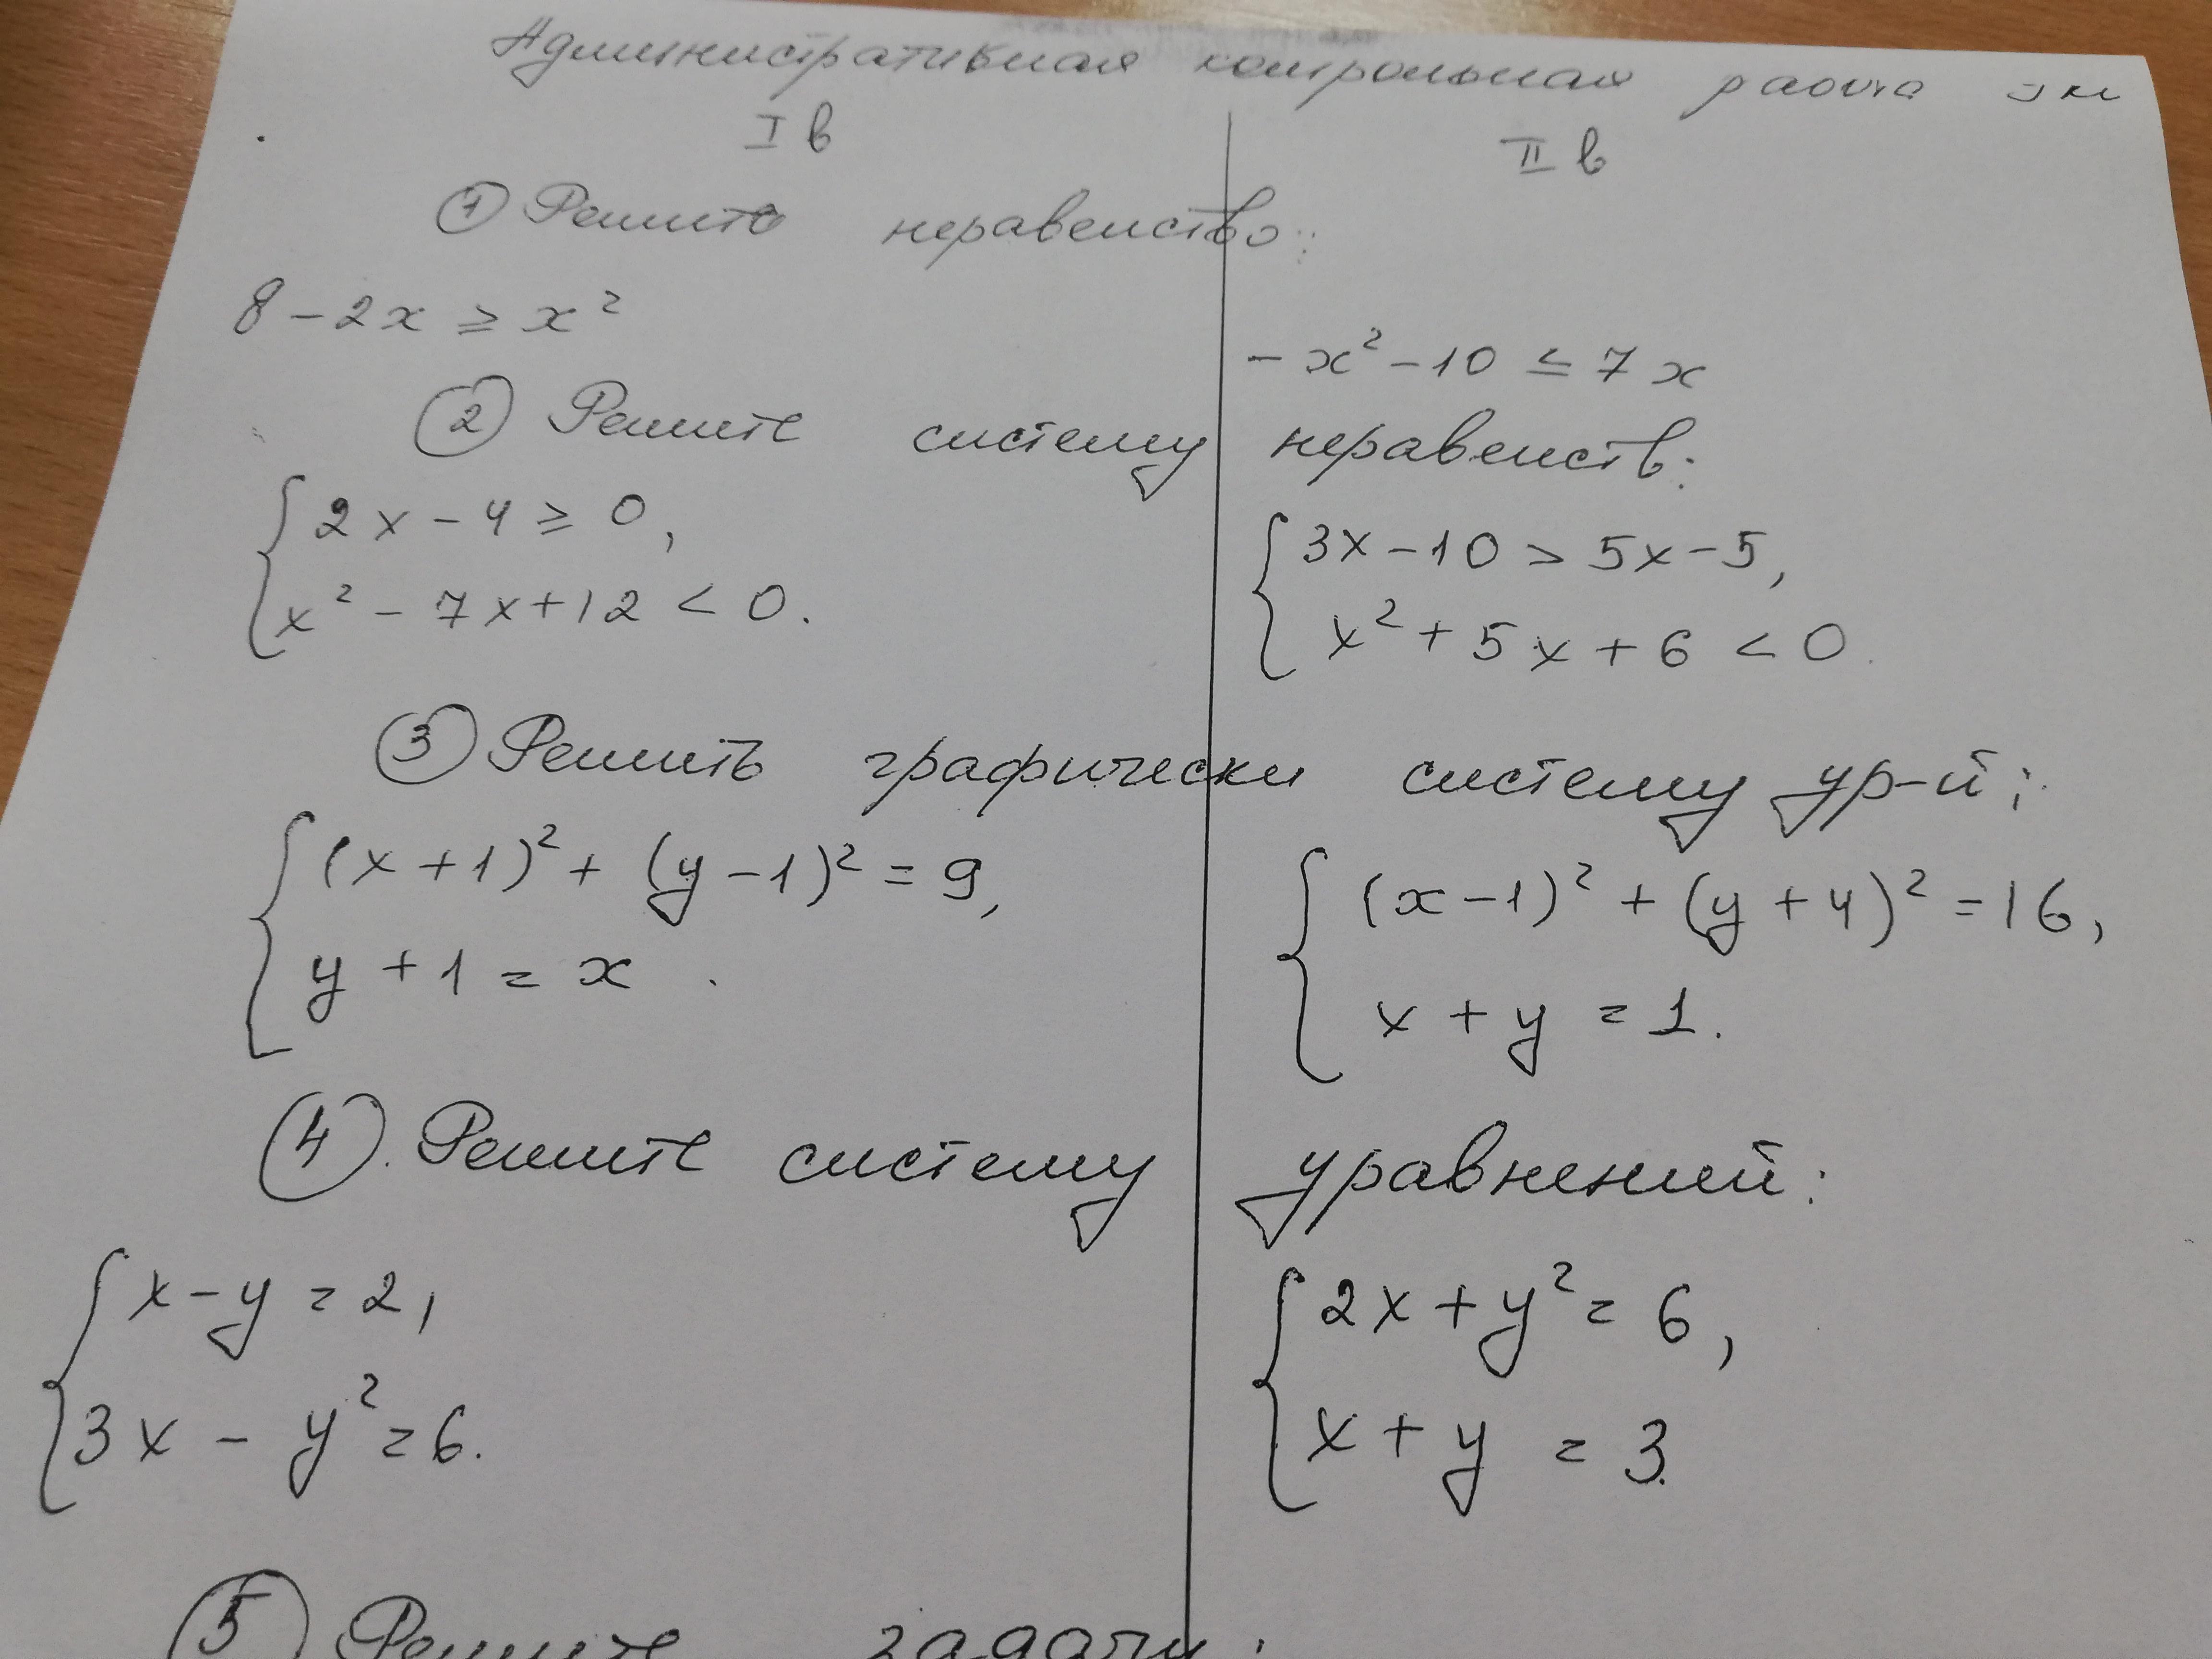 Административная контрольная работа 9 кл
I в
II в
① Решите неравенство:
8 - 2x ≥ x²
- x² - 10 ≤ 7x
② Решите систему неравенств:
{ 2x - 4 ≥ 0,
x² - 7x + 12 < 0.
{ 3x - 10 > 5x - 5,
x² + 5x + 6 < 0.
③ Решить графически систему ур-й:
{ (x + 1)² + (y - 1)² = 9,
y + 1 = x.
{ (x - 1)² + (y + 4)² = 16,
x + y = 1.
④. Решите систему уравнений:
{ x - y = 2,
3x - y² = 6.
{ 2x + y² = 6,
x + y = 3.
⑤ Решите задачу: